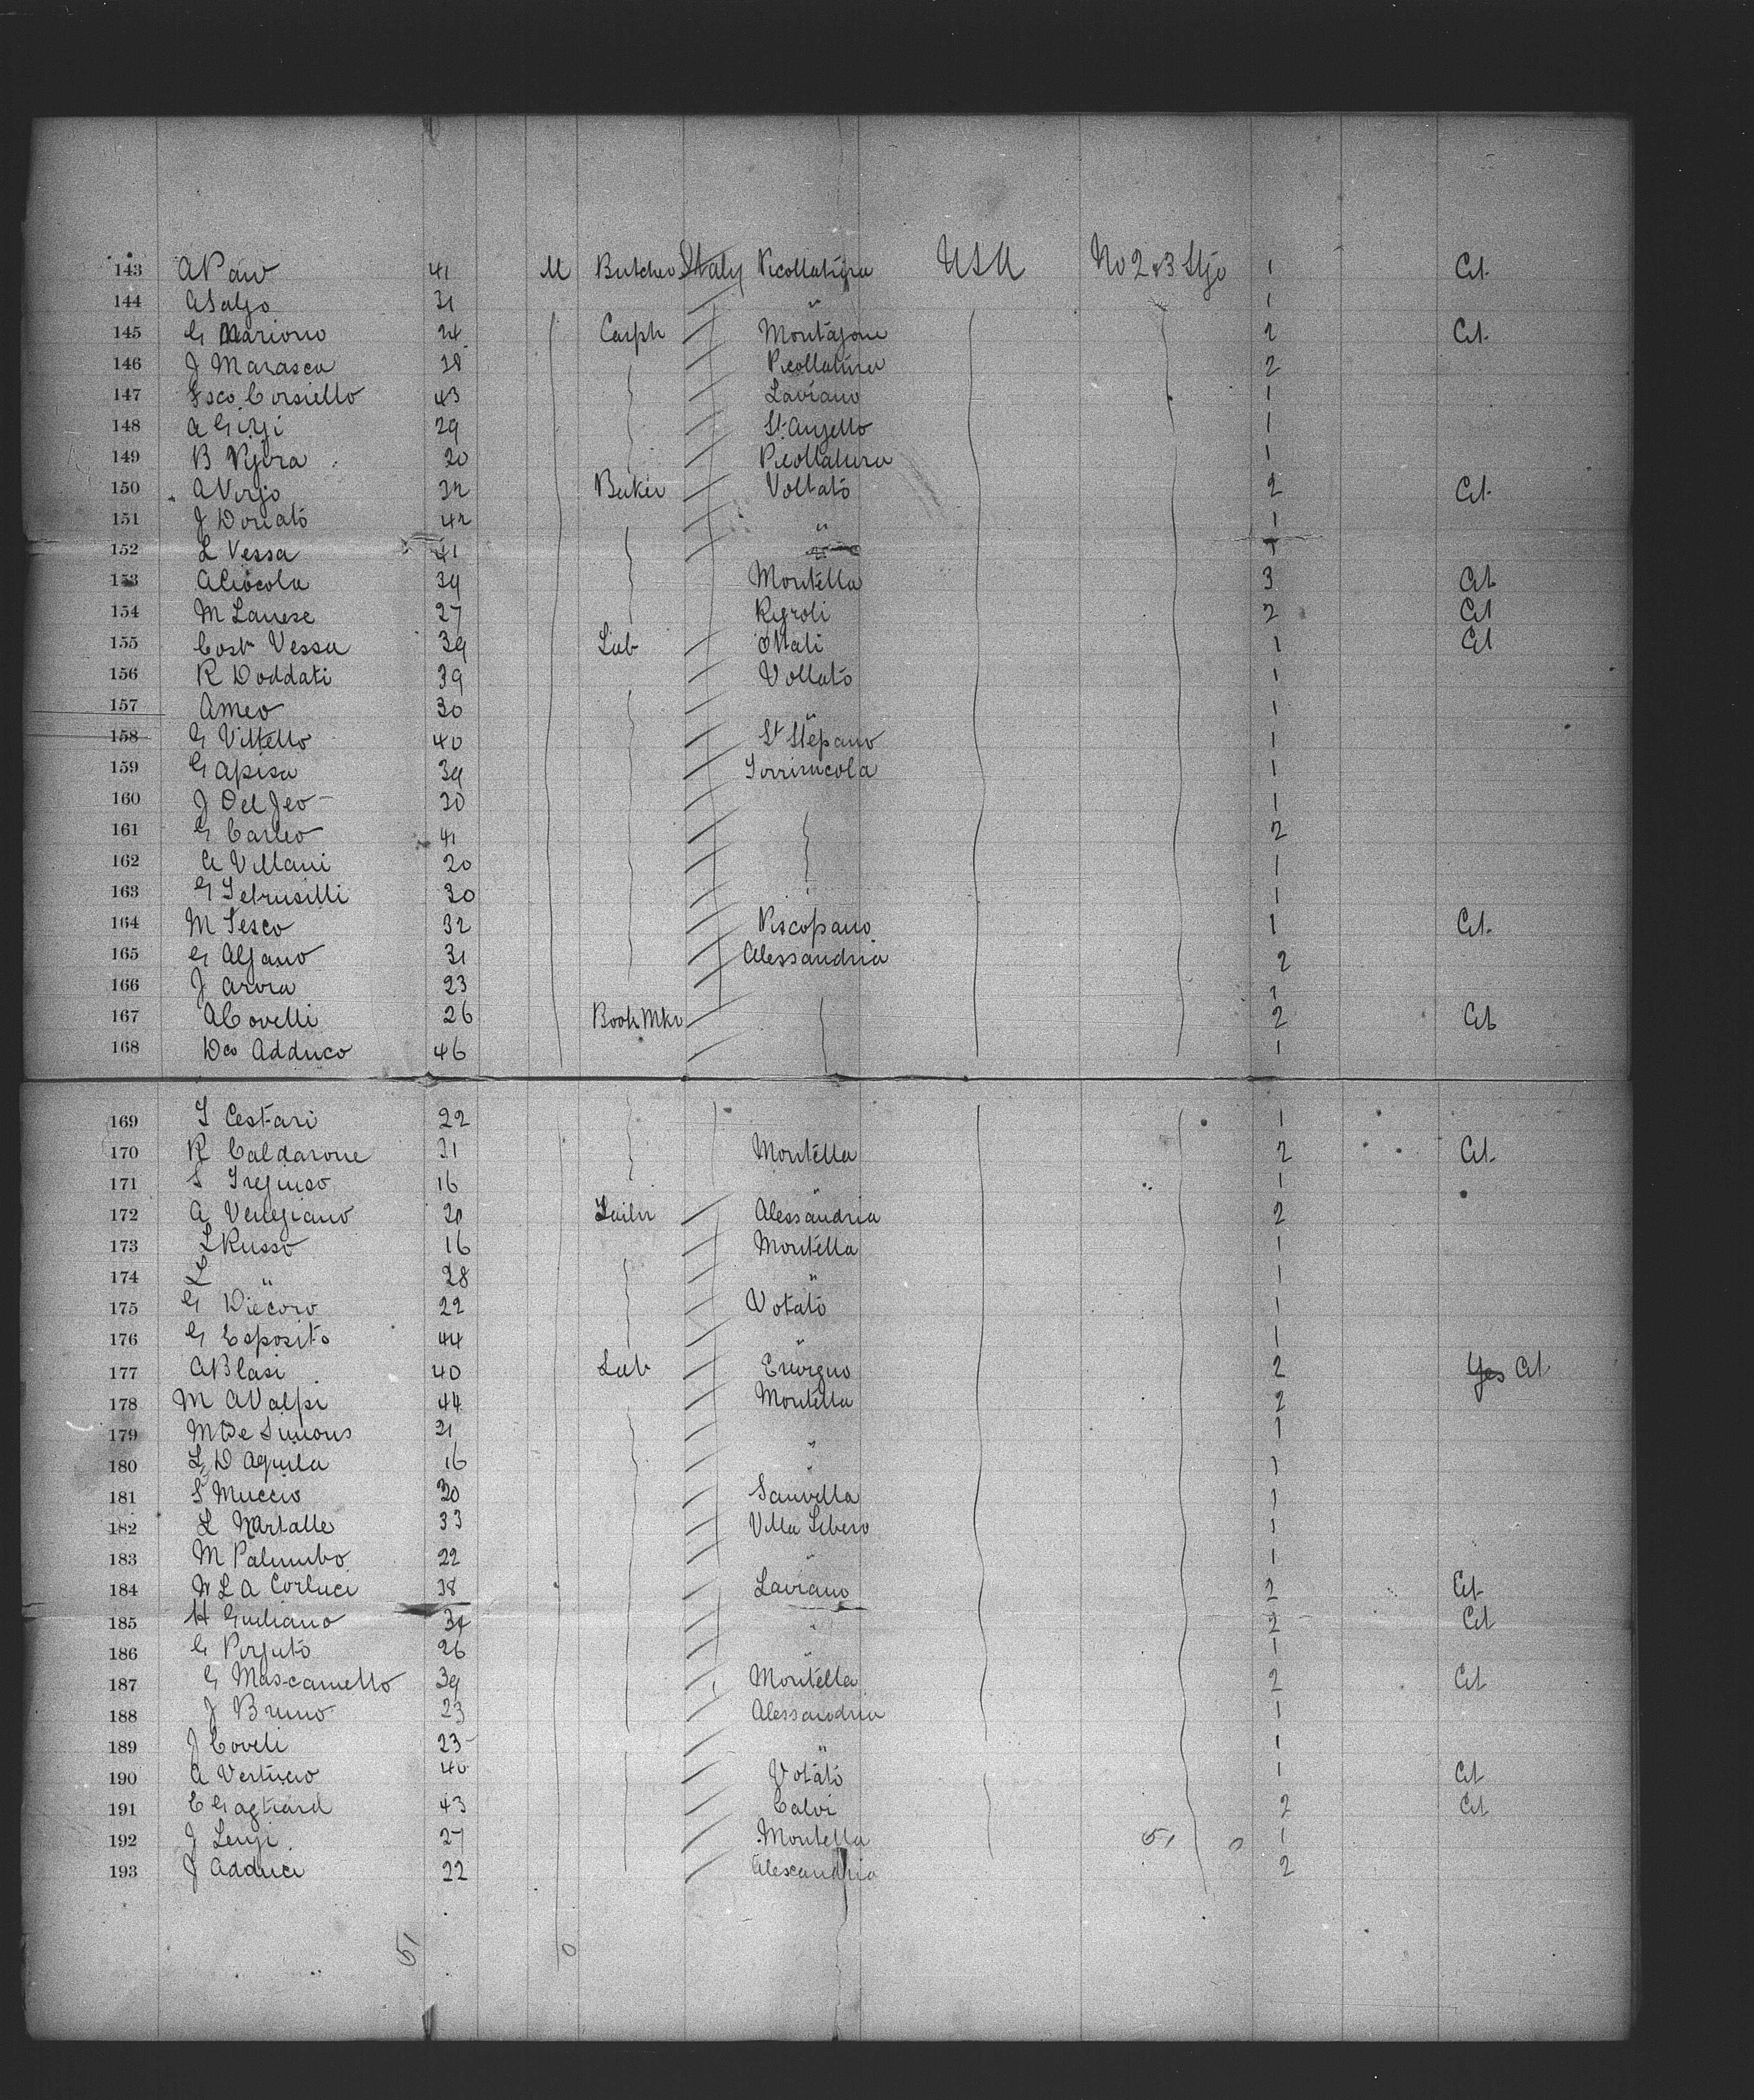 143 A Paiv 41 M Butcher Italy Picollatura USA No 2 & 3 Stge 1 Cit
144 A Salgo 31 " 1
145 G Mariono 24 Carptr Montafone 2 Cit
146 J Marasca 38 Picollatura 2
147 Fsco Corsiello 43 Laviano 1
148 A Girgi 29 St Angello 1
149 B 20 Picollatura 1
150 A Virjo 32 Baker Voltato 2 Cit
151 J Donato 42 " 1
152 L Vessa 41 " 1
153 A Ciocola 34 Montella 3 Cit
154 M Lanese 27 2 Cit
155 Cost Vessa 39 Lab 1 Cit
156 R Doddati 39 Voltato 1
157 A Meo 30 " 1
158 G Vittello 40 St Stepano 1
159 G Apisa 39 Torrinicola 1
160 J Del Jeo 30 1
161 G Carleo 41 2
162 A Villani 20 1
163 G Petrusilli 30 1
164 M Tesco 32 Piscopano 1 Cit
165 G Alfano 31 Alessandria 2
166 J Arvia 23 1
167 A Covelli 26 Boot Mkr 2 Cit
168 Dco Adduco 46 1
169 I Cestari 22 1
170 R Caldarone 31 Montella 2 Cit
171 S 16 " 1
172 A Veneziano 20 Tailor Alessandria 2
173 L Russo 16 Montella 1
174 L " 28 " 1
175 G Diecoro 22 Votato 1
176 G Esposito 44 " 1
177 A Blasi 40 Lab 2 Yes Cit
178 M A Valpi 44 Montella 2
179 M De Simons 21 1
180 L D Aquila 16 " 1
181 S Muccio 30 Sanvella 1
182 L Martalle 33 Villa Libero 1
183 M Palumbo 22 " 1
184 L A Corluci 38 Laviano 2 Cit
185 H Guiliano 34 " 2 Cit
186 G Porfuto 26 " 1
187 G Mascamello 39 Montella 2 Cit
188 J Bruno 23 Alessandria 1
189 J Coveli 23 " 1
190 A Vertucio 40 Votato 1 Cit
191 C Gagliard 43 Calvi 2 Cit
192 J Lenzi 27 Montella 51 0 1
193 J Adduci 22 Alescandria 2
51 0